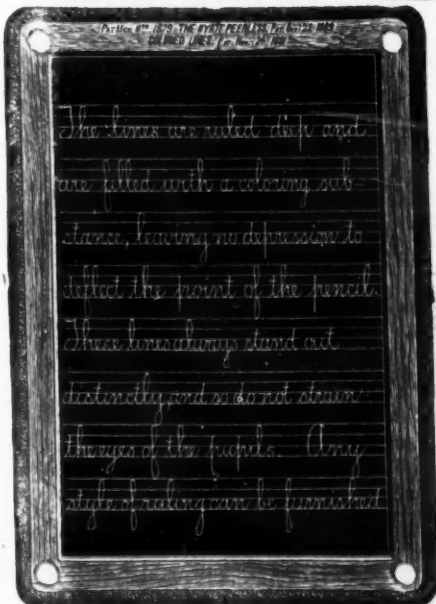 The lines are ruled deep and
are filled with a coloring sub-
tance, leaving no depression to
deflect the point of the pencil.
These lines always stand out
distinctly, and so do not strain
the eyes of the pupils. Any
style of ruling can be furnished